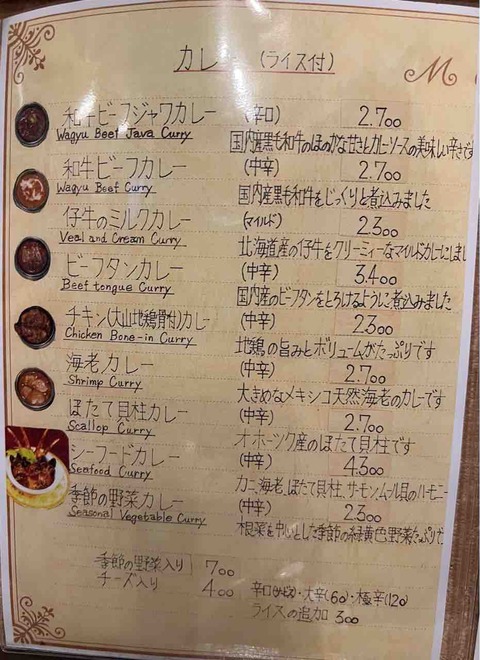 カレー (ライス付)
和牛ビーフジャワカレー (辛口) 2.700
Wagyu Beef Java Curry 国内産黒毛和牛のほのかな甘さとカレーソースの美味しい辛さです
和牛ビーフカレー (中辛) 2.700
Wagyu Beef Curry 国内産黒毛和牛をじっくりと煮込みました
仔牛のミルクカレー (マイルド) 2.300
Veal and Cream Curry 北海道産の仔牛をクリーミィーなマイルドカレーにしまし
ビーフタンカレー (中辛) 3.400
Beef tongue Curry 国内産のビーフタンをとろけるように煮込みました
チキン(大山地鶏骨付)カレー (中辛) 2.300
Chicken Bone-in Curry 地鶏の旨みとボリュームがたっぷりです
海老カレー (中辛) 2.700
Shrimp Curry 大きめなメキシコ天然海老のカレーです
ほたて貝柱カレー (中辛) 2.700
Scallop Curry オホーツク産のほたて貝柱です
シーフードカレー (中辛) 4.300
Seafood Curry カニ、海老、ほたて貝柱、サーモン、ムール貝のハーモニー
季節の野菜カレー (中辛) 2.300
Seasonal Vegetable Curry 根菜を中心とした季節の緑黄色野菜たっぷりで
季節の野菜入り 700
チーズ入り 400 辛口・大辛(60)・極辛(120)
ライスの追加 300